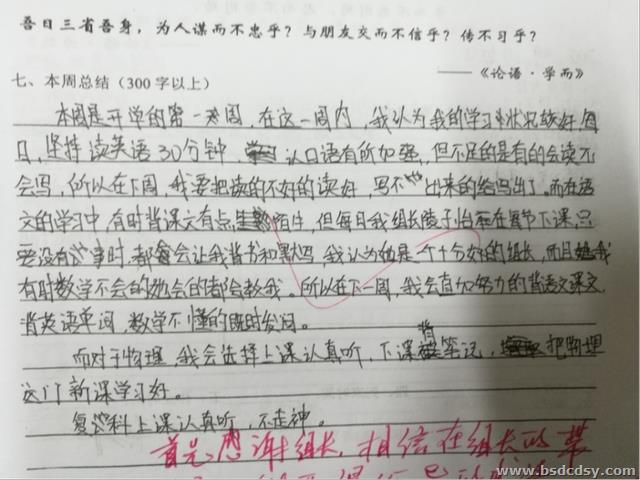 吾日三省吾身，为人谋而不忠乎？与朋友交而不信乎？传不习乎？
——《论语·学而》
七、本周总结（300字以上）
本周是开学的第一周，在这一周内，我认为我的学习状况较好，每
日，坚持读英语30分钟，认口语有所加强，但不足的是有的会读不
会写，所以在下周，我要把读的不好的读好，写不出来的给写出了。而在语
文的学习中，有时背课文有点陌生，但每日我组长在每节下课，只
要没有事时，都会让我背书和默写，我认为她是一个十分好的组长，而且我
有时数学不会的她会的都会教我。所以在下一周，我会更加努力的背语文课文
背英语单词，数学不懂的即时发问。
而对于物理，我会选择上课认真听，下课背笔记，把物理
这门新课学习好。
复科上课认真听，不走神。
首先感谢组长，相信在组长的带
www.bsdcdsy.com